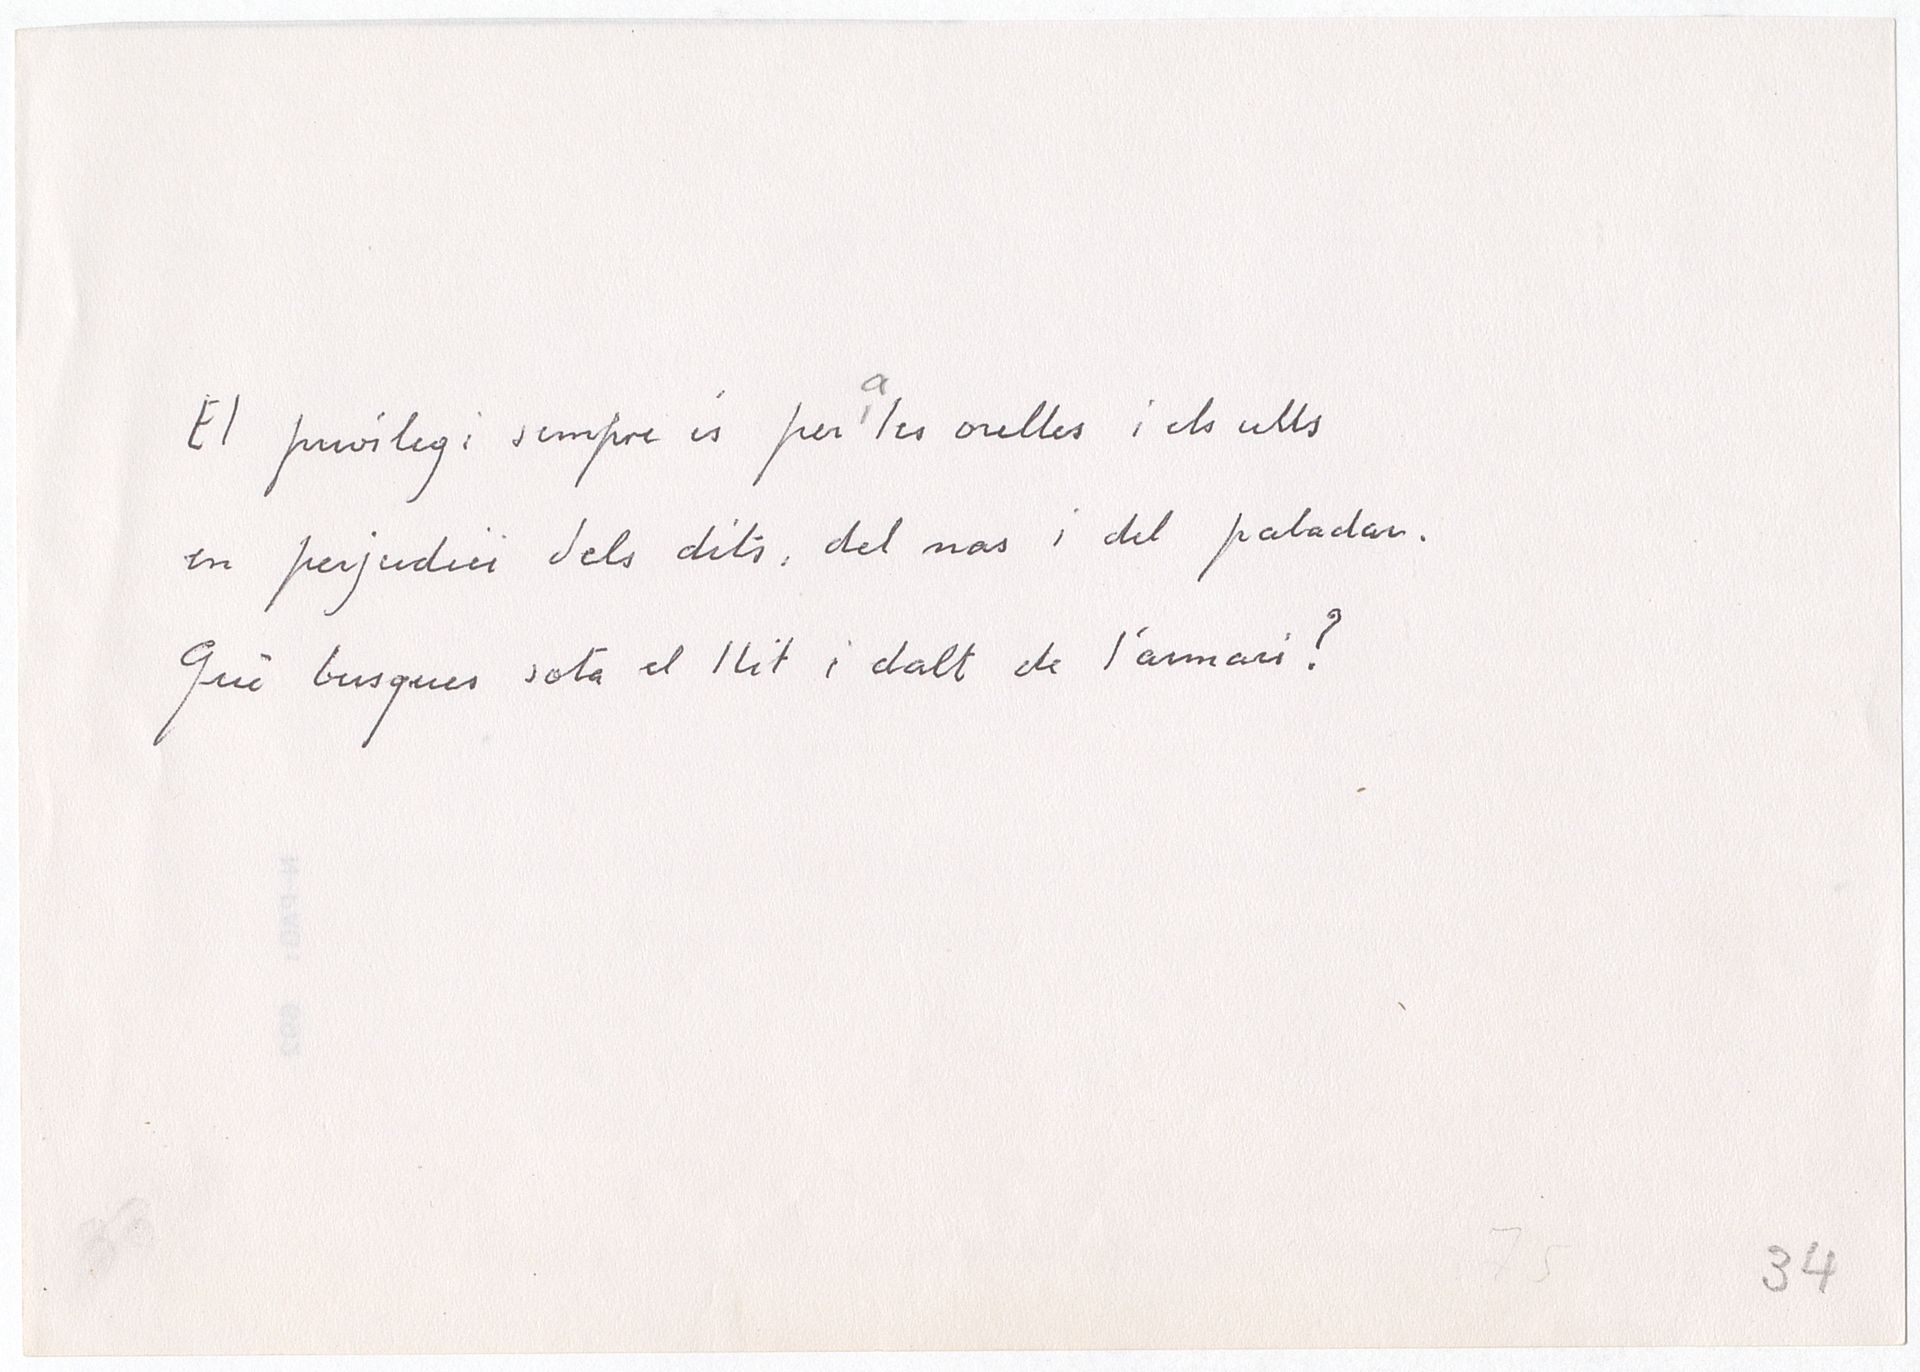 El privilegi sempre és per a les orelles i els ulls
en perjudici dels dits, del nas i del paladar.
Què busques sota el llit i dalt de l'armari?
75
34